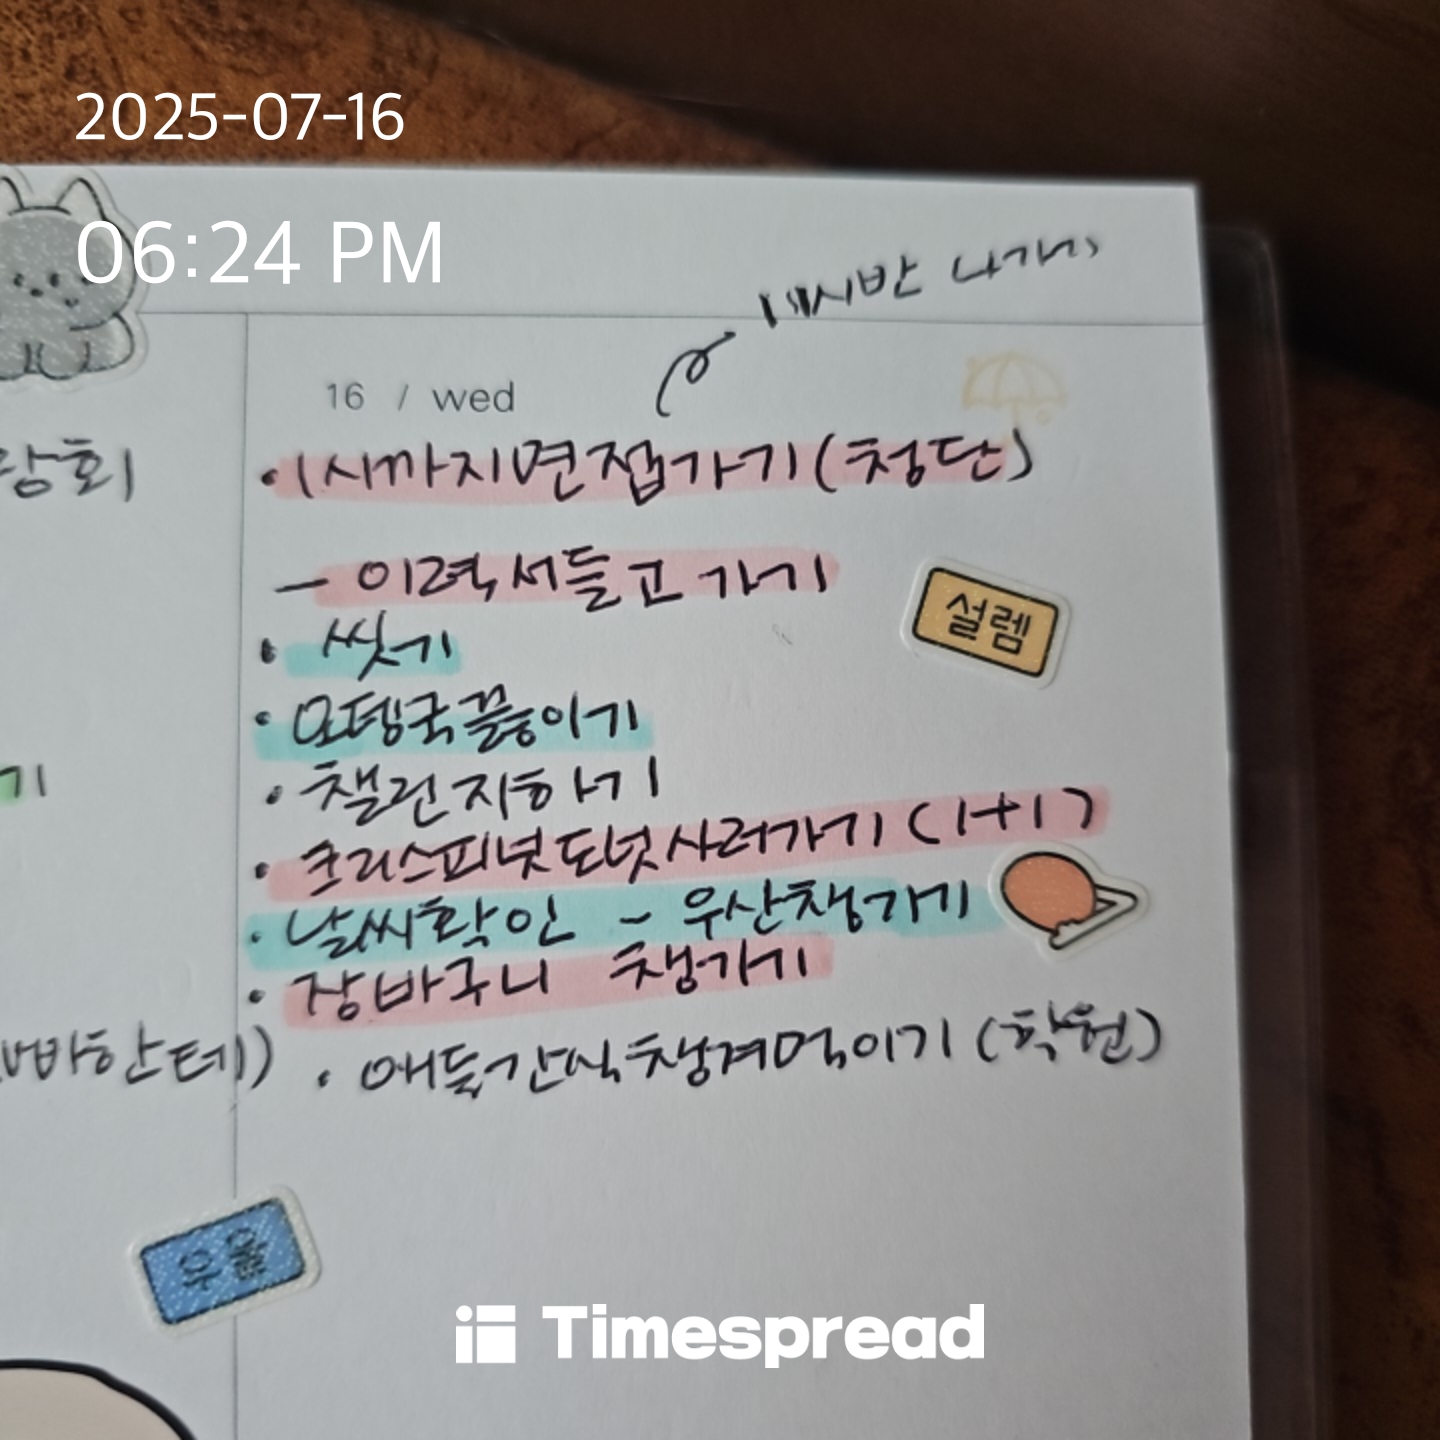 2025-07-16
06:24 PM
시반 나가기
16 / wed
담회
•1시까지면접가기(청단)
- 이력서들고 가기
• 씻기
설렘
• 오뎅국끓이기
기
• 챌린지하기
• 크리스피넛도넛사러가기 (1+1)
• 날씨확인 - 우산챙가기
• 장바구니 챙가기
빠한테)
• 애들간식챙겨먹이기 (학원)
Timespread